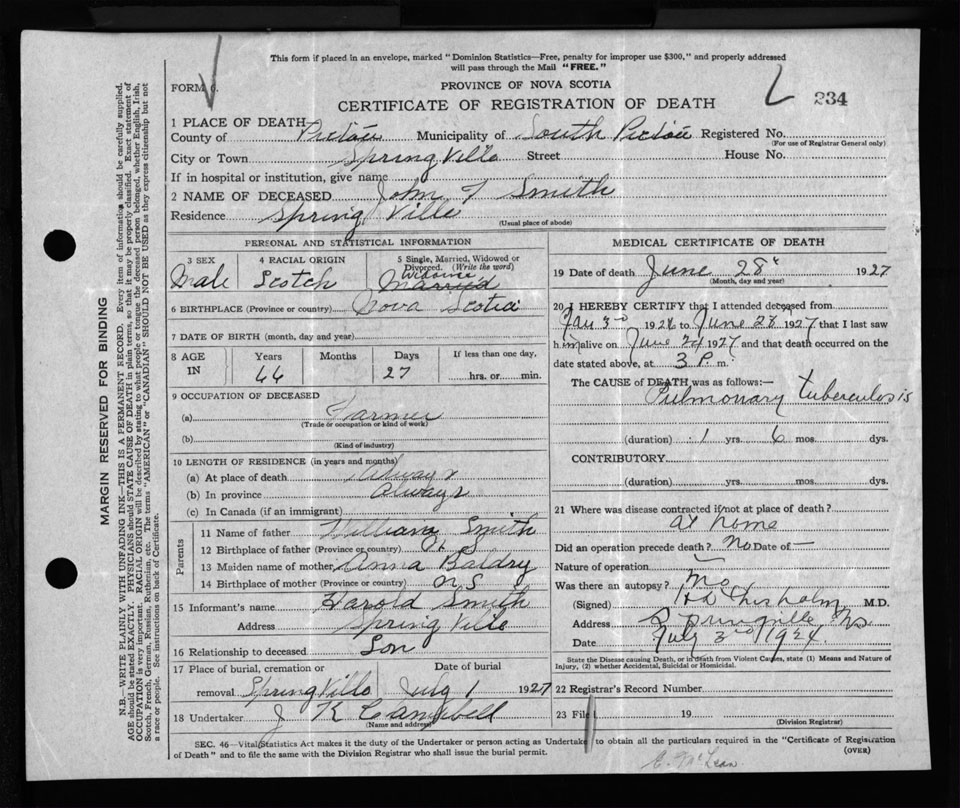 This form if placed in an envelope, marked "Dominion Statistics—Free, penalty for improper use $300," and properly addressed
will pass through the Mail "FREE."
FORM 6.
PROVINCE OF NOVA SCOTIA
CERTIFICATE OF REGISTRATION OF DEATH
234
1 PLACE OF DEATH
County of Pictou Municipality of South Pictou Registered No.
(For use of Registrar General only)
City or Town Spring Ville Street House No.
If in hospital or institution, give name
2 NAME OF DECEASED John F Smith
Residence Spring Ville
(Usual place of abode)
PERSONAL AND STATISTICAL INFORMATION
3 SEX 4 RACIAL ORIGIN 5 Single, Married, Widowed or
Divorced. (Write the word)
Male Scotch Married
6 BIRTHPLACE (Province or country) Nova Scotia
7 DATE OF BIRTH (month, day and year)
8 AGE IN Years Months Days If less than one day,
66 27 hrs. or min.
9 OCCUPATION OF DECEASED
(a) Farmer
(Trade or occupation or kind of work)
(b)
(Kind of industry)
10 LENGTH OF RESIDENCE (in years and months)
(a) At place of death Always
(b) In province Always
(c) In Canada (if an immigrant)
Parents
11 Name of father William Smith
12 Birthplace of father (Province or country) N S
13 Maiden name of mother Anna Baldry
14 Birthplace of mother (Province or country) N S
15 Informant's name Harold Smith
Address Spring Ville
16 Relationship to deceased Son
17 Place of burial, cremation or Date of burial
removal Spring Ville July 1 1927
18 Undertaker J K Campbell
(Name and address)
MEDICAL CERTIFICATE OF DEATH
19 Date of death June 28th 1927
(Month, day and year)
20 I HEREBY CERTIFY that I attended deceased from
Jan 3rd 1926 to June 28 1927 that I last saw
him alive on June 1927 and that death occurred on
date stated above, at 3 P. m.
The CAUSE of DEATH was as follows:—
Pulmonary tuberculosis
(duration) 1 yrs. 6 mos. dys.
CONTRIBUTORY
(duration) yrs. mos. dys.
21 Where was disease contracted if not at place of death?
at home
Did an operation precede death? No Date of —
Nature of operation —
Was there an autopsy? No
(Signed) Chisholm M.D.
Address Springville N.S.
Date July 3rd
State the Disease causing Death, or in death from Violent Causes, state (1) Means and Nature of
Injury, (2) whether Accidental, Suicidal or Homicidal.
22 Registrar's Record Number
23 File 19
(Division Registrar)
SEC. 46—Vital Statistics Act makes it the duty of the Undertaker or person acting as Undertaker to obtain all the particulars required in the "Certificate of Registration
of Death" and to file the same with the Division Registrar who shall issue the burial permit. (OVER)
C. McLean
MARGIN RESERVED FOR BINDING
N.B.—WRITE PLAINLY WITH UNFADING INK—THIS IS A PERMANENT RECORD. Every item of information should be carefully supplied.
AGE should be stated EXACTLY. PHYSICIANS should STATE CAUSE OF DEATH in plain terms, so that it may be properly classified. Exact statement of
OCCUPATION is very important. RACIAL ORIGIN will be described by stating to what people or tongue the deceased person belonged, whether English, Irish,
Scotch, French, German, Russian, Ruthenian, etc. The terms "AMERICAN" or "CANADIAN" SHOULD NOT BE USED as they express citizenship but not
a race or people. See instructions on back of Certificate.